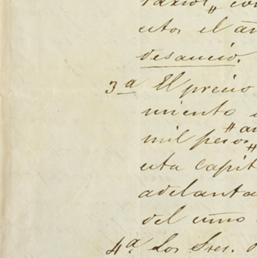 utos el an
desaucio.
3ª El precio
miento
mil pesos
esta capit
adelanta
del cuño
4ª Los Sres.